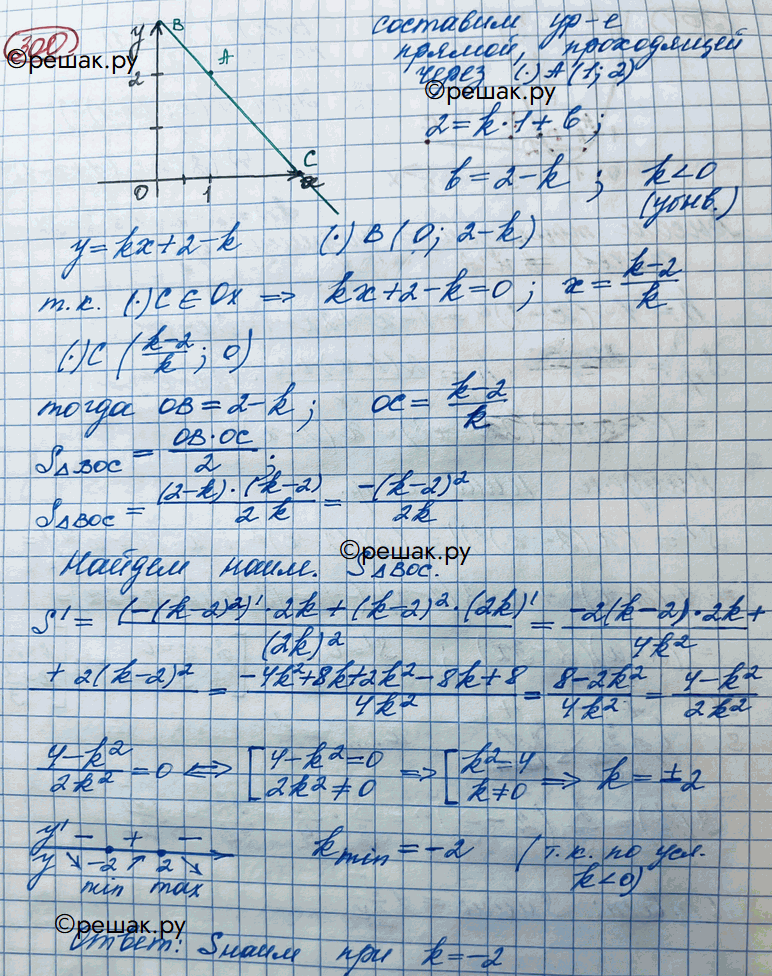 300
©решак.ру
y
B
A
2
C
x
0
1
составим ур-е
прямой, проходящей
через (·) A (1; 2)
©решак.ру
2 = k·1 + b ;
b = 2 - k ; k < 0
(убыв.)
y = kx + 2 - k (·) B (0; 2-k)
т.к. (·) C ∈ Ox ⇒ kx + 2 - k = 0 ; x = \frac{k-2}{k}
(·) C (\frac{k-2}{k} ; 0)
тогда OB = 2 - k ; OC = \frac{k-2}{k}
S△BOC = \frac{OB·OC}{2} ;
S△BOC = \frac{(2-k)·(k-2)}{2k} = \frac{-(k-2)^2}{2k}
©решак.ру
Найдем наим. S△BOC.
S' = \frac{(-(k-2)^2)'·2k + (k-2)^2·(2k)'}{(2k)^2} = \frac{-2(k-2)·2k +}{4k^2}
\frac{+ 2(k-2)^2}{} = \frac{-4k^2+8k+2k^2-8k+8}{4k^2} = \frac{8-2k^2}{4k^2} = \frac{4-k^2}{2k^2}
\frac{4-k^2}{2k^2} = 0 ⇔ [ 4-k^2=0 ⇒ [ k^2=4 ⇒ k = ±2
2k^2≠0 k≠0
y' − + −
y ↘ -2 ↗ 2 ↘
min max
k min = -2 (т.к. по усл.
k<0)
©решак.ру
Ответ: S наим при k = -2